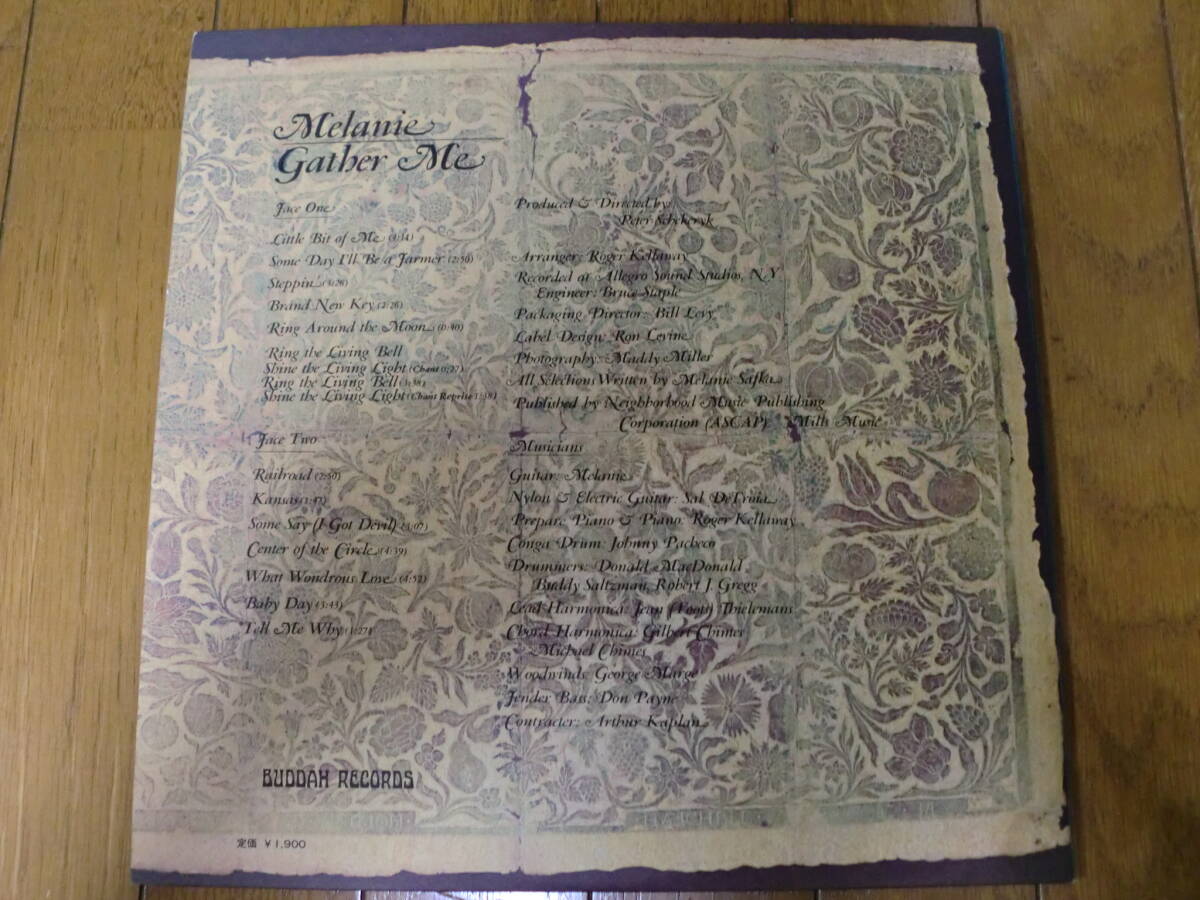 Melanie
Gather Me
Face One
Little Bit of Me (3:14)
Some Day I'll Be a Farmer (2:56)
Steppin (3:26)
Brand New Key (2:26)
Ring Around the Moon (0:40)
Ring the Living Bell
Shine the Living Light (Chant 0:27)
Ring the Living Bell (3:38)
Shine the Living Light (Chant Reprise 1:18)
Face Two
Railroad (2:50)
Kansas (1:47)
Some Say (I Got Devil) (3:07)
Center of the Circle (4:39)
What Wondrous Love (4:52)
Baby Day (3:43)
Tell Me Why (1:27)
Produced & Directed by:
Peter Schekeryk
Arranger: Roger Kellaway
Recorded at Allegro Sound Studios, N.Y.
Engineer: Bruce Staple
Packaging Director: Bill Levy
Label Design: Ron Levine
Photography: Maddy Miller
All Selections Written by Melanie Safka
Published by Neighborhood Music Publishing
Corporation (ASCAP) Mills Music
Musicians
Guitar: Melanie
Nylon & Electric Guitar: Sal DeTroia
Prepare Piano & Piano: Roger Kellaway
Conga Drum: Johnny Pacheco
Drummers: Donald MacDonald
Buddy Saltzman, Robert J. Gregg
Lead Harmonica: Jean (Toots) Thielemans
Chord Harmonica: Gilbert Chimes
Michael Chimes
Woodwinds: George Marge
Fender Bass: Don Payne
Contracter: Arthur Kaplan
BUDDAH RECORDS
定価 ¥1,900